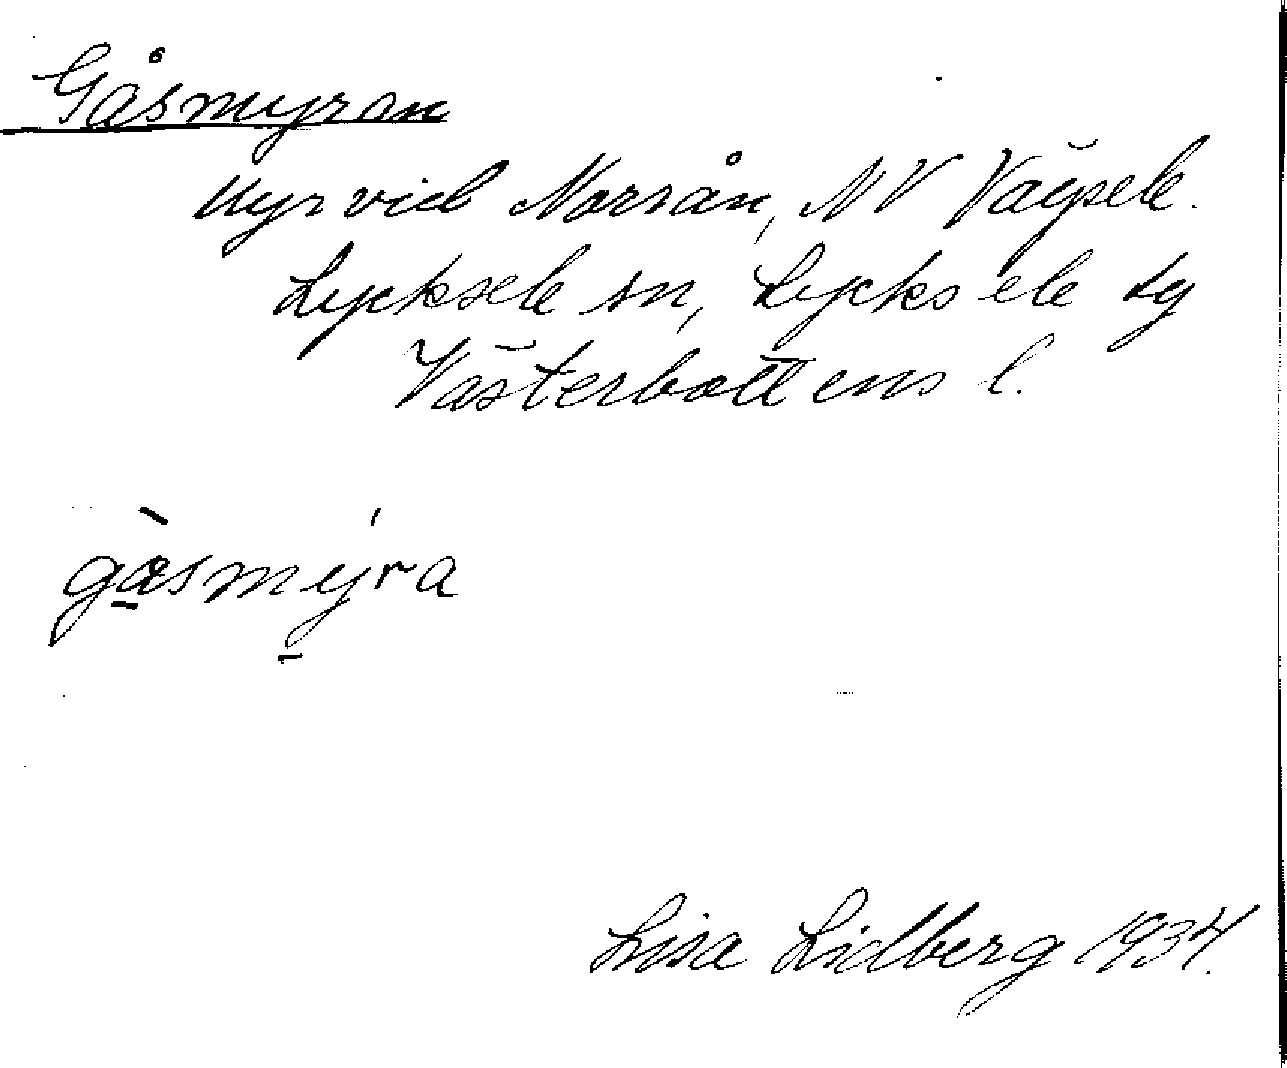 Gåsmyran
Myr vid Norrån, NV Vägsele.
Lycksele sn, Lycksele tg
Västerbottens l.
gàsmýra
Lisa Lidberg 1934.